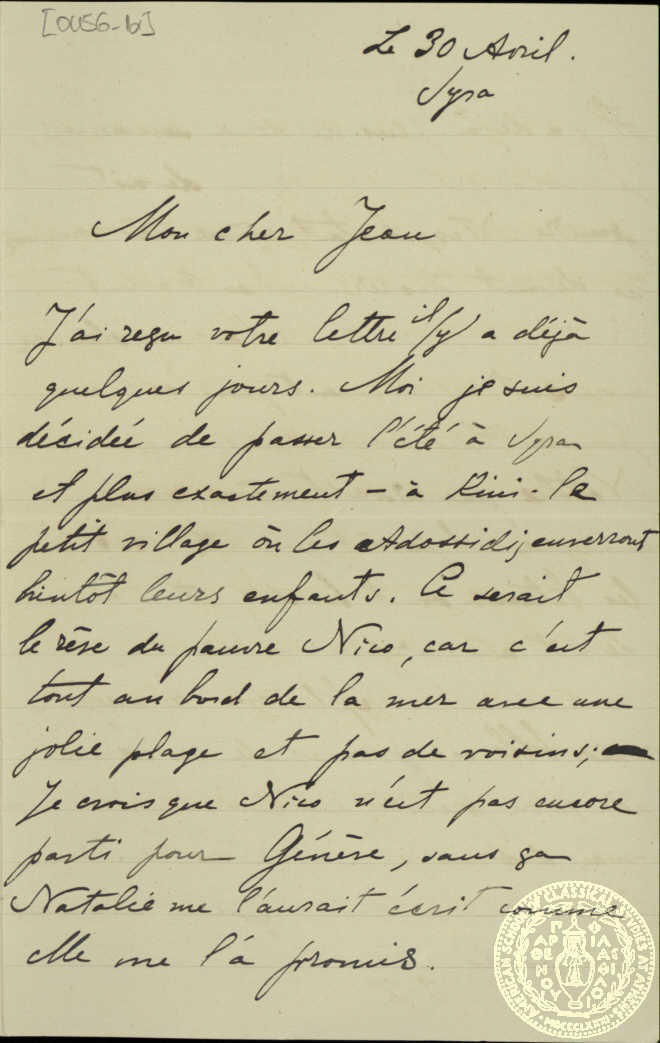 [0456-b]
Le 30 Avril.
Syra
Mon cher Jean
J'ai reçu votre lettre il/y a déjà
quelques jours. Moi je suis
décidée de passer l'été à Syra
et plus exactement – à Kini - le
petit village où les Adossidis enverront
bientôt leurs enfants. Ce serait
le rêve du pauvre Nico, car c'est
tout au bord de la mer avec une
jolie plage et pas de voisins;
Je crois que Nico n'est pas encore
parti pour Génève, sans ça
Natalie me l'aurait écrit comme
elle me l'a promis.
AMERICAN SCHOOL OF CLASSICAL STUDIES AT ATHENS
ΠΑΡΘΕΝΟΥ ΦΙΛΑΣ ΦΙΛΟΙ
MDCCCLXXXI